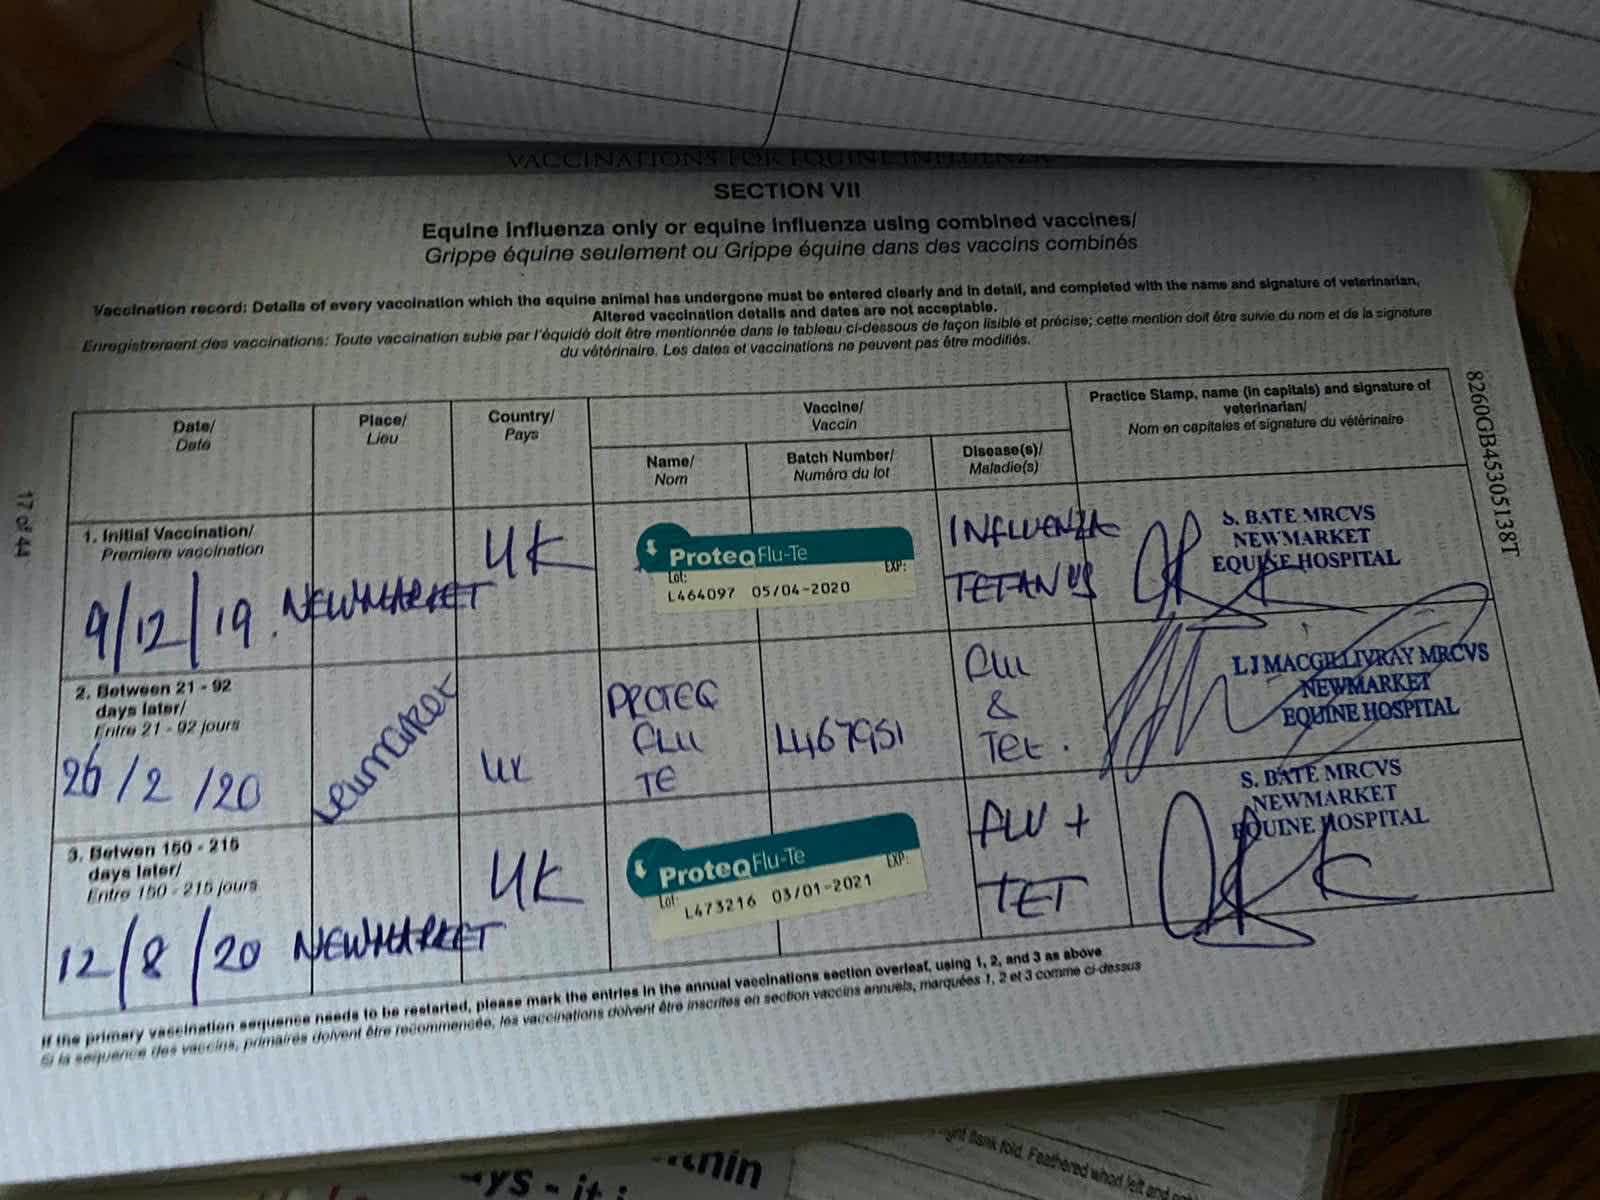 VACCINATIONS FOR EQUINE INFLUENZA
SECTION VII
Equine influenza only or equine influenza using combined vaccines/
Grippe équine seulement ou Grippe équine dans des vaccins combinés
Vaccination record: Details of every vaccination which the equine animal has undergone must be entered clearly and in detail, and completed with the name and signature of veterinarian,
Altered vaccination details and dates are not acceptable.
Enregistrement des vaccinations: Toute vaccination subie par l'équidé doit être mentionnée dans le tableau ci-dessous de façon lisible et précise; cette mention doit être suivie du nom et de la signature
du vétérinaire. Les dates et vaccinations ne peuvent pas être modifiés.
Date/
Date
Place/
Lieu
Country/
Pays
Vaccine/
Vaccin
Name/
Nom
Batch Number/
Numéro du lot
Disease(s)/
Maladie(s)
Practice Stamp, name (in capitals) and signature of
veterinarian/
Nom en capitales et signature du vétérinaire
1. Initial Vaccination/
Premiere vaccination
9/12/19.
NEWMARKET
UK
ProteqFlu-Te
Lot: EXP:
L464097 05/04-2020
INFLUENZA
TETANUS
S. BATE MRCVS
NEWMARKET
EQUINE HOSPITAL
2. Between 21 - 92
days later/
Entre 21 - 92 jours
26/2/20
Newmarket
UK
PROTEQ
FLU
TE
L467951
FLU
&
TET.
LJ MACGILLIVRAY MRCVS
NEWMARKET
EQUINE HOSPITAL
3. Betwen 150 - 215
days later/
Entre 150 - 215 jours
12/8/20
NEWMARKET
UK
ProteqFlu-Te
Lot: EXP:
L473216 03/01-2021
FLU +
TET
S. BATE MRCVS
NEWMARKET
EQUINE HOSPITAL
If the primary vaccination sequence needs to be restarted, please mark the entries in the annual vaccinations section overleaf, using 1, 2, and 3 as above
Si la sequence des vaccins, primaires doivent être recommencée, les vaccinations doivent être inscrites en section vaccins annuels, marquées 1, 2 et 3 comme ci-dessus
17 of 44
8260GB45305138T
flank fold. Feathered whorl left and